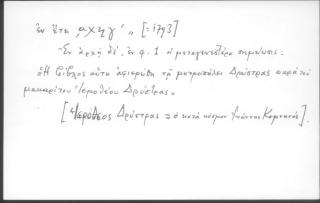 ἐν ἔτει αχϟγ´ „ [=1793]
Ἐν ἀρχῇ δέ, ἐν φ. 1 ἡ μεταγενεστέρα σημείωσις:
„Ἡ βίβλος αὕτη ἀφιερώθη τῇ μητροπόλει Δρύστρας παρὰ τοῦ
μακαρίτου Ἱεροθέου Δρύστρας„
[Ἱερόθεος Δρύστρας = ὁ κατὰ κόσμον Ἰωάννης Κομνηνός].